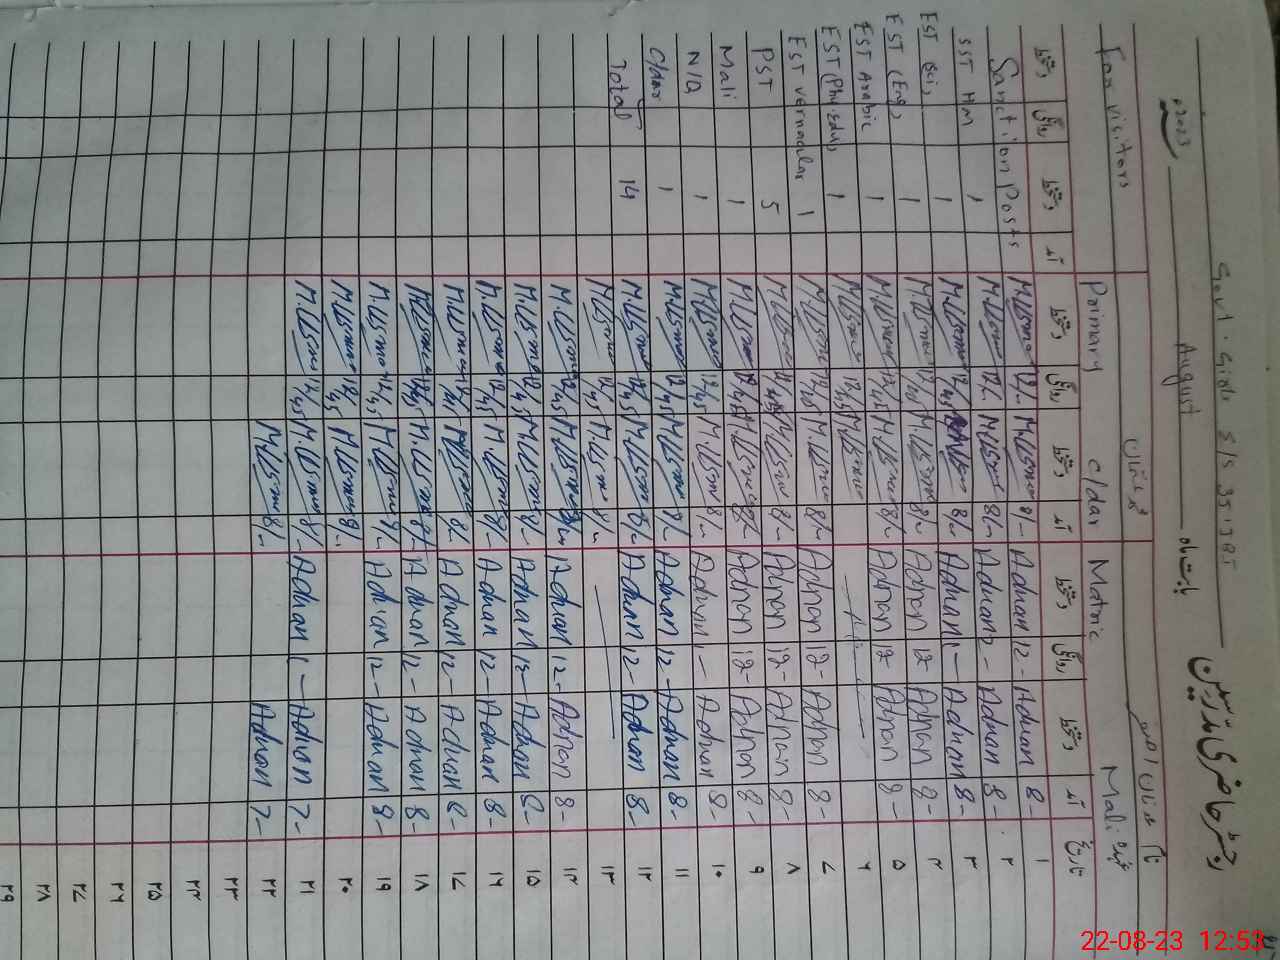 دفتر حاضری مدرسین Govt. Girls E/S
بابت ماہ August 2023
نام و عہدہ
For visitors Primary C/dar Matric Mali
دستخط روانگی دستخط آمد دستخط روانگی دستخط آمد دستخط روانگی دستخط آمد تاریخ
Sanction Posts M.Usman 12/- M.Usman 8/- Adnan 12- Adnan 8- ۱
SST H.M 1 M.Usman 12/- M.Usman 8/- Adnan Adnan 8- ۲
EST (Sci) 1 M.Usman 12/45 M.Usman 8/- Adnan 1- Adnan 8- ۳
EST (Eng) 1 M.Usman M.Usman 8/- Adnan 12- Adnan 8- ۴
EST Arabic 1 M.Usman 12/45 M.Usman 8/- Adnan 12- Adnan 8- ۵
EST (Phy.Edu) 1 M.Usman 12/45 M.Usman ۶
EST vernacular 1 M.Usman 12/45 M.Usman 8/- Adnan 12- Adnan 8- ۷
PST 5 M.Usman 12/45 M.Usman 8/- Adnan 12- Adnan 8- ۸
Mali 1 M.Usman 12/45 M.Usman 8/- Adnan 12- Adnan 8- ۹
N/Q 1 M.Usman 12/45 M.Usman 8/- Adnan 1- Adnan 8- ۱۰
C/dar 1 M.Usman 12/45 M.Usman 8/- Adnan 12- Adnan 8- ۱۱
Total 14 M.Usman 12/45 M.Usman 8/- Adnan 12- Adnan 8- ۱۲
M.Usman 12/45 M.Usman 8/- ۱۳
M.Usman 12/45 M.Usman 8/- Adnan 12- Adnan 8- ۱۴
M.Usman 12/45 M.Usman 8/- Adnan 12- Adnan 8- ۱۵
M.Usman 12/45 M.Usman 8/- Adnan 12- Adnan 8- ۱۶
M.Usman 12/45 M.Usman 8/- Adnan 12- Adnan 8- ۱۷
M.Usman 12/45 M.Usman 8/- Adnan 12- Adnan 8- ۱۸
M.Usman 12/45 M.Usman 8/- Adnan 12- Adnan 8- ۱۹
M.Usman 12/45 M.Usman 8/- ۲۰
M.Usman 12/45 M.Usman 8/- Adnan 1- Adnan 7- ۲۱
M.Usman 8/- Adnan 7- ۲۲
۲۳
۲۴
۲۵
۲۶
۲۷
۲۸
۲۹
22-08-23 12:53